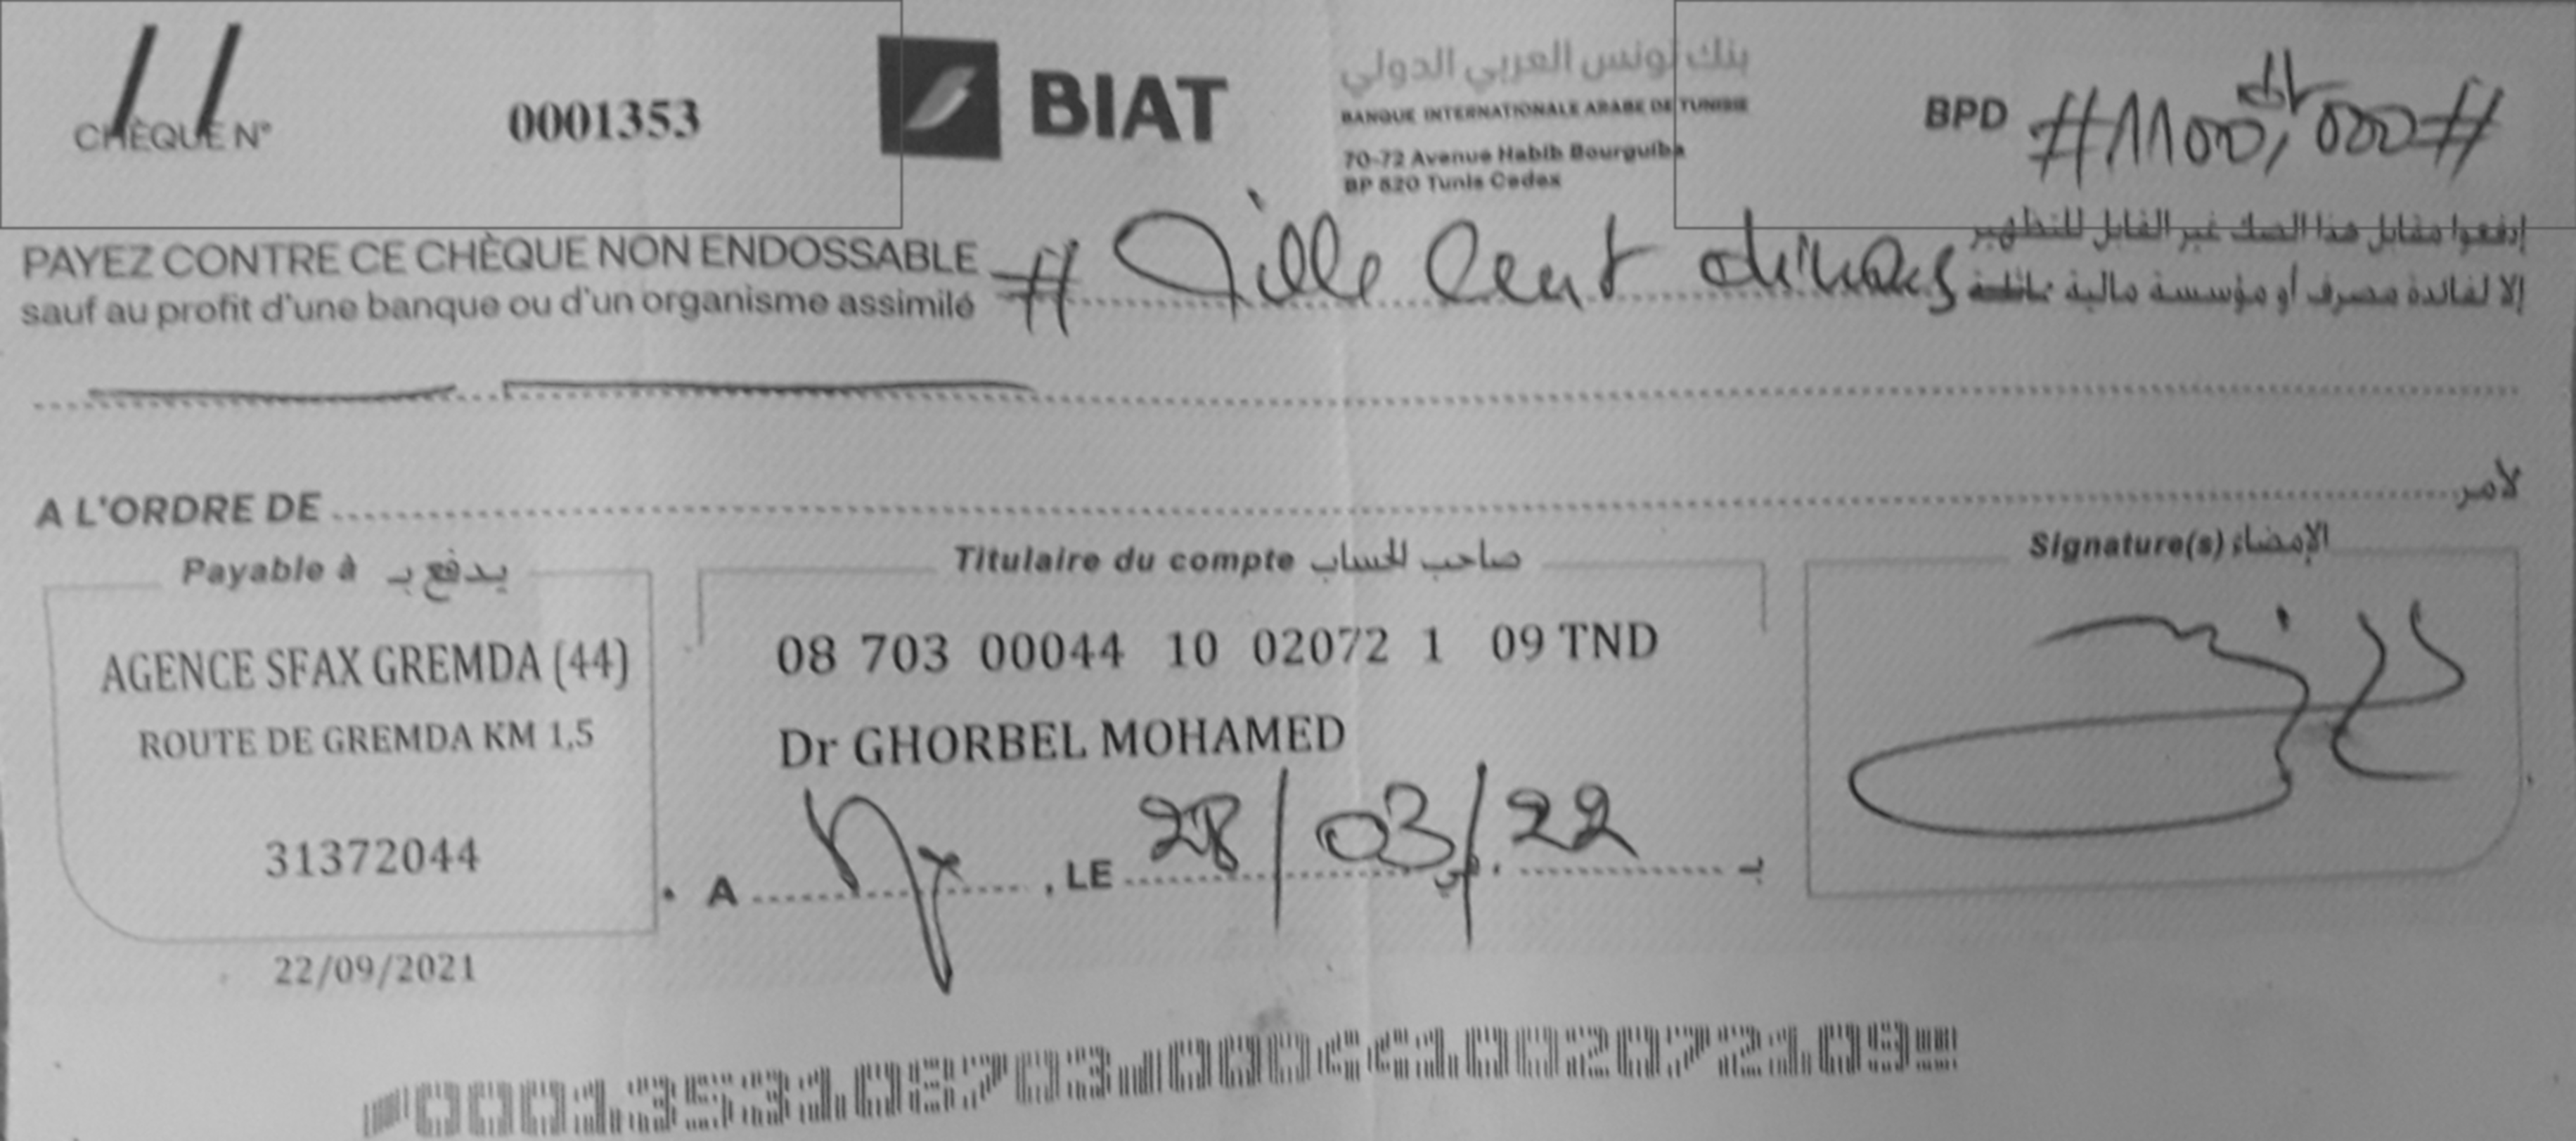 CHÈQUE N° 0001353
BIAT
بنك تونس العربي الدولي
BANQUE INTERNATIONALE ARABE DE TUNISIE
70-72 Avenue Habib Bourguiba
BP 520 Tunis Cedex
BPD #1100,000#
PAYEZ CONTRE CE CHÈQUE NON ENDOSSABLE
sauf au profit d'une banque ou d'un organisme assimilé
# Mille Cent dinars
إدفعوا مقابل هذا الصك غير القابل للتظهير
إلا لفائدة مصرف أو مؤسسة مالية مماثلة
A L'ORDRE DE لأمر
Payable à يدفع بـ
AGENCE SFAX GREMDA (44)
ROUTE DE GREMDA KM 1,5
31372044
22/09/2021
Titulaire du compte صاحب الحساب
08 703 00044 10 02072 1 09 TND
Dr GHORBEL MOHAMED
A , LE 28/03/22 في بـ
Signature(s) الإمضاء
0001353108703 000441002072109